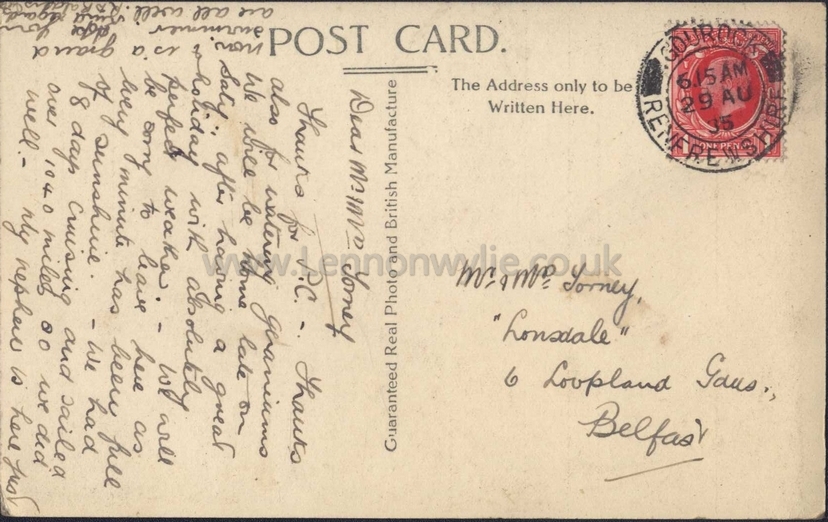 POST CARD.
The Address only to be
Written Here.
GOUROCK
6.15 AM
29 AU
35
RENFREWSHIRE
ONE PENNY
Guaranteed Real Photo and British Manufacture
www.Lennonwylie.co.uk
Mr & Mrs Torney,
"Lonsdale"
6 Loopland Gdns.,
Belfast
Dear Mr & Mrs Torney
Thanks for P.C. - Thanks
also for watering geraniums
We will be home late on
Saty: after having a great
holiday with absolutely
perfect weather - We will
be sorry to leave here as
every minute has been full
of sunshine. - We had
8 days cruising and sailed
over 1040 miles so we did
well. - My nephew is here just
now. & is a grand
swimmer
are all well.